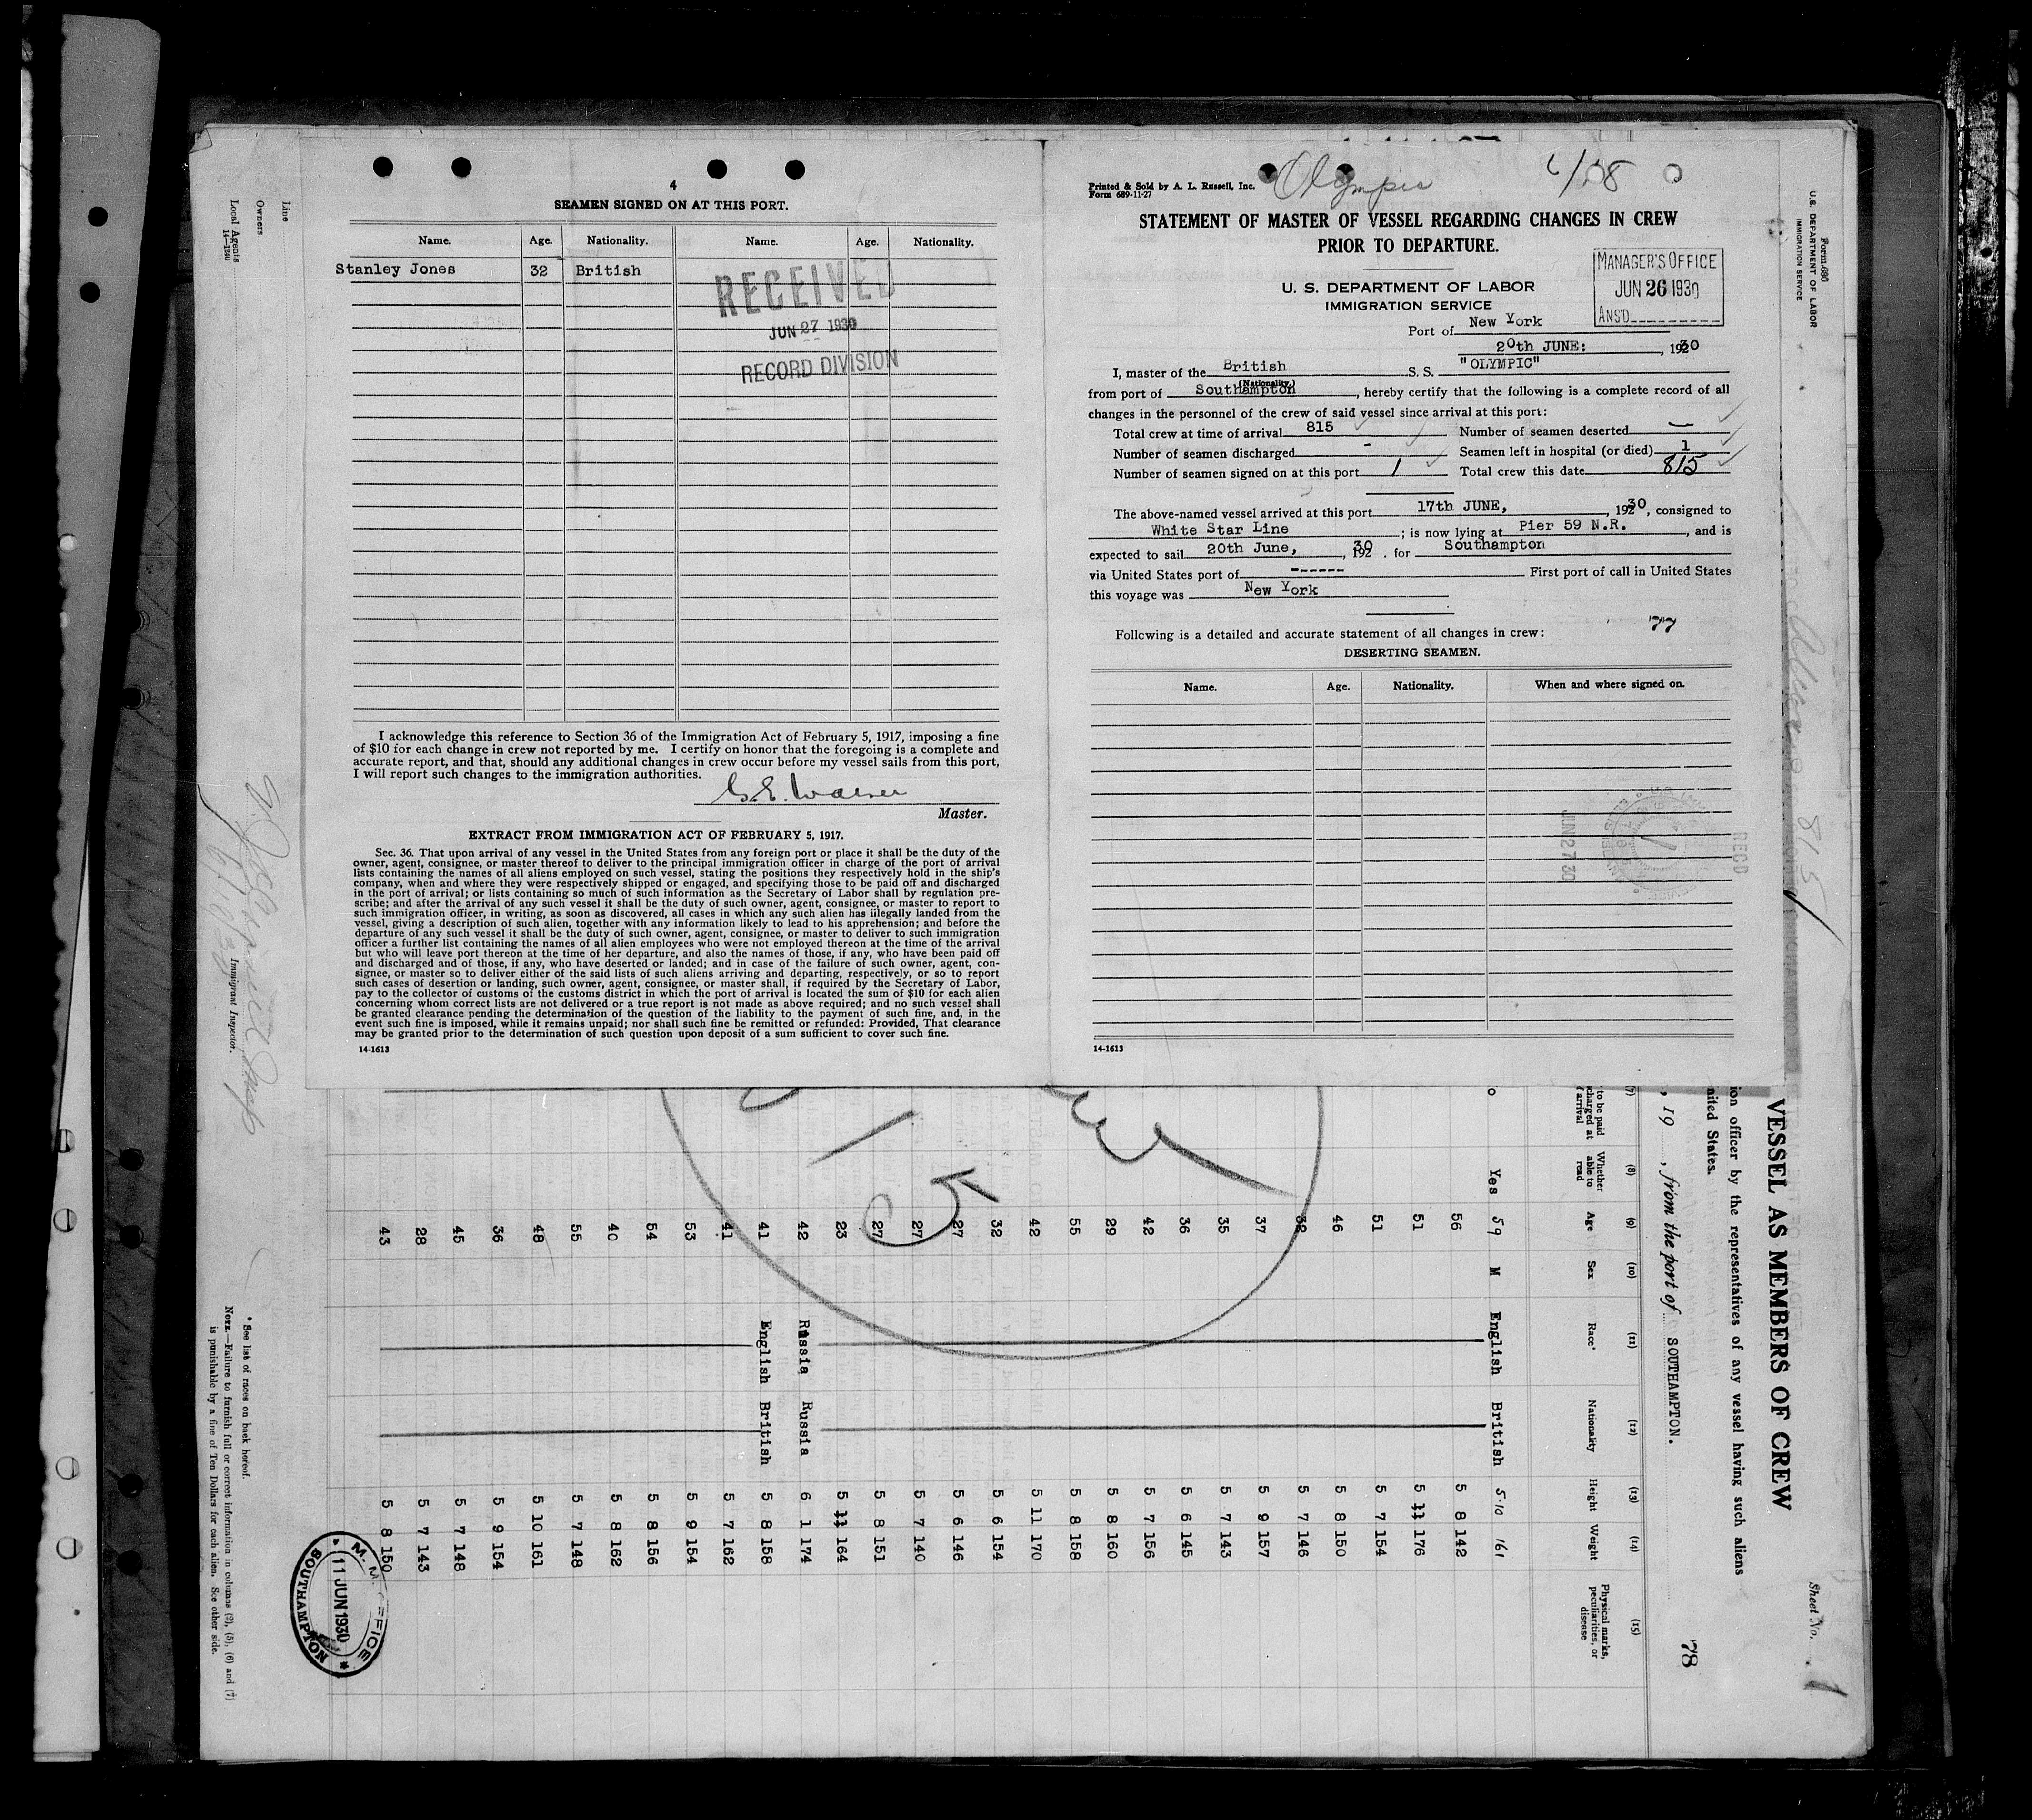 4
SEAMEN SIGNED ON AT THIS PORT.
Name. Age. Nationality. Name. Age. Nationality.
Stanley Jones 32 British
RECEIVED
JUN 27 1930
RECORD DIVISION
I acknowledge this reference to Section 36 of the Immigration Act of February 5, 1917, imposing a fine
of $10 for each change in crew not reported by me. I certify on honor that the foregoing is a complete and
accurate report, and that, should any additional changes in crew occur before my vessel sails from this port,
I will report such changes to the immigration authorities.
Master.
EXTRACT FROM IMMIGRATION ACT OF FEBRUARY 5, 1917.
Sec. 36. That upon arrival of any vessel in the United States from any foreign port or place it shall be the duty of the
owner, agent, consignee, or master thereof to deliver to the principal immigration officer in charge of the port of arrival
lists containing the names of all aliens employed on such vessel, stating the positions they respectively hold in the ship's
company, when and where they were respectively shipped or engaged, and specifying those to be paid off and discharged
in the port of arrival; or lists containing so much of such information as the Secretary of Labor shall by regulation pre-
scribe; and after the arrival of any such vessel it shall be the duty of such owner, agent, consignee, or master to report to
such immigration officer, in writing, as soon as discovered, all cases in which any such alien has illegally landed from the
vessel, giving a description of such alien, together with any information likely to lead to his apprehension; and before the
departure of any such vessel it shall be the duty of such owner, agent, consignee, or master to deliver to such immigration
officer a further list containing the names of all alien employees who were not employed thereon at the time of the arrival
but who will leave port thereon at the time of her departure, and also the names of those, if any, who have been paid off
and discharged and of those, if any, who have deserted or landed; and in case of the failure of such owner, agent, con-
signee, or master so to deliver either of the said lists of such aliens arriving and departing, respectively, or so to report
such cases of desertion or landing, such owner, agent, consignee, or master shall, if required by the Secretary of Labor,
pay to the collector of customs of the customs district in which the port of arrival is located the sum of $10 for each alien
concerning whom correct lists are not delivered or a true report is not made as above required; and no such vessel shall
be granted clearance pending the determination of the question of the liability to the payment of such fine, and, in the
event such fine is imposed, while it remains unpaid; nor shall such fine be remitted or refunded: Provided, That clearance
may be granted prior to the determination of such question upon deposit of a sum sufficient to cover such fine.
14-1613
Printed & Sold by A. L. Russell, Inc.
Form 689-11-27
Olympic
STATEMENT OF MASTER OF VESSEL REGARDING CHANGES IN CREW
PRIOR TO DEPARTURE.
U. S. DEPARTMENT OF LABOR
IMMIGRATION SERVICE
MANAGER'S OFFICE
JUN 26 1930
ANS'D
Port of New York
20th JUNE: , 192 30
I, master of the British S. S. "OLYMPIC"
(Nationality.)
from port of Southampton , hereby certify that the following is a complete record of all
changes in the personnel of the crew of said vessel since arrival at this port:
Total crew at time of arrival 815 Number of seamen deserted —
Number of seamen discharged - Seamen left in hospital (or died) 1
Number of seamen signed on at this port 1 Total crew this date 815
The above-named vessel arrived at this port 17th JUNE, , 192 30, consigned to
White Star Line ; is now lying at Pier 59 N.R. , and is
expected to sail 20th June, , 192 30 . for Southampton
via United States port of ------ First port of call in United States
this voyage was New York
Following is a detailed and accurate statement of all changes in crew: 77
DESERTING SEAMEN.
Name. Age. Nationality. When and where signed on.
JUN 27 30
REC'D
14-1613
Form 680
U.S. DEPARTMENT OF LABOR
IMMIGRATION SERVICE
Sheet No. 1
VESSEL AS MEMBERS OF CREW
ion officer by the representatives of any vessel having such aliens
nited States.
78
, 19 , from the port of SOUTHAMPTON.
(7) (8) (9) (10) (11) (12) (13) (14) (15)
to be paid
charged at
arrival
Whether
able to
read
Age Sex Race* Nationality Height Weight
Physical marks,
peculiarities, or
disease
o Yes 59 M English British 5·10 161
56 5 8 142
51 5 11 176
51 5 7 154
46 5 8 150
32 5 7 146
37 5 9 157
35 5 7 143
36 5 6 145
42 5 7 156
29 5 8 160
55 5 8 158
42 5 11 170
32 5 6 154
27 5 6 146
27 5 7 140
27 5 8 151
23 5 11 164
42 Russia Russia 6 1 174
41 English British 5 8 158
41 5 7 162
53 5 9 154
54 5 8 156
40 5 8 162
55 5 7 148
48 5 10 161
36 5 9 154
45 5 7 148
28 5 7 143
43 5 8 150
M. M. OFFICE
11 JUN 1930
SOUTHAMPTON
Line
Owners
Local Agents
14-1240
Immigrant Inspector.
* See list of races on back hereof.
NOTE.—Failure to furnish full or correct information in columns (2), (5), (6) and (7)
is punishable by a fine of Ten Dollars for each alien. See other side.
815